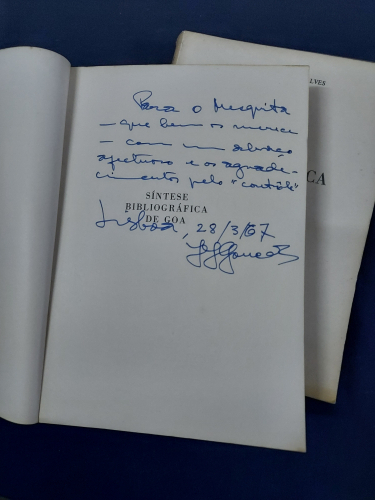 Para o Mesquita
— que bem os merece
— com um abraço
afetuoso e os agrade-
cimentos pelo "contôlo"
SÍNTESE
BIBLIOGRÁFICA
DE GOA
Lisboa, 28/3/67
LVES
CA